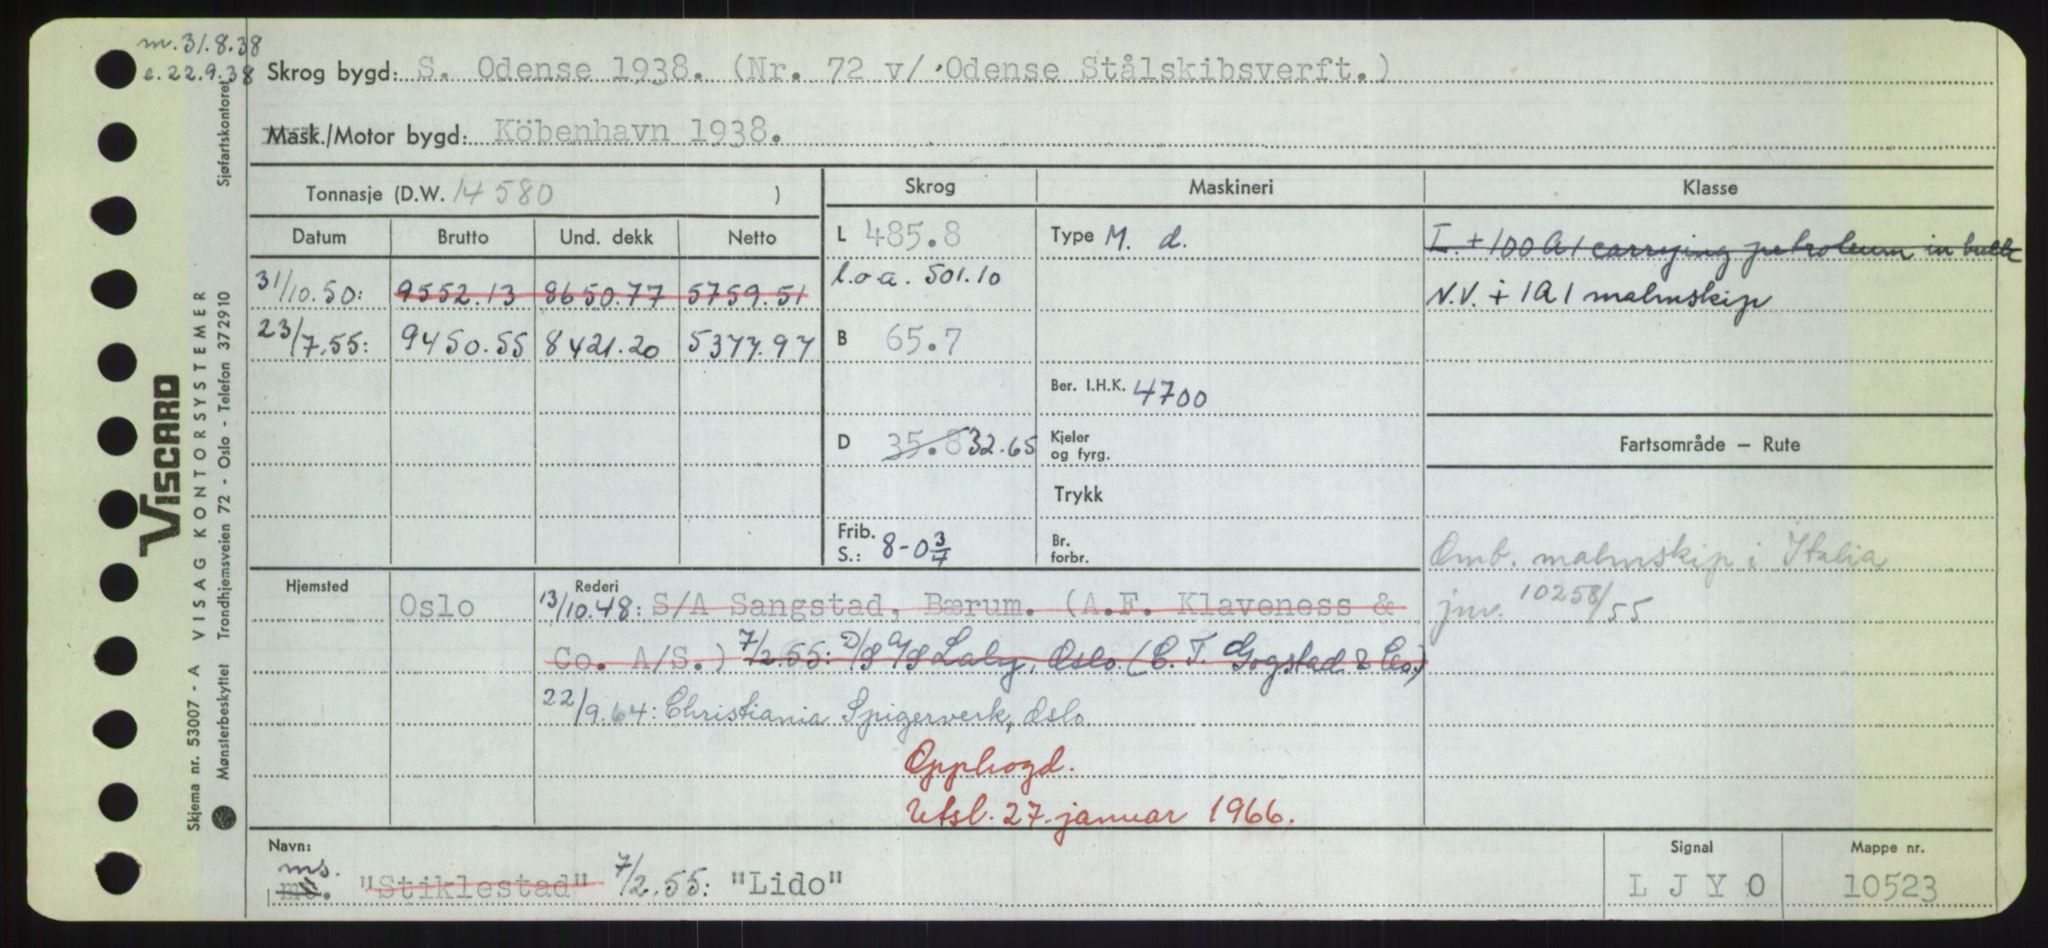 m. 31.8.38
e. 22.9.38
Skrog bygd: S. Odense 1938. (Nr. 72 v/ Odense Stålskibsverft.)
Mask./Motor bygd: Köbenhavn 1938.
Tonnasje (D.W. 14580 )
Skrog
Maskineri
Klasse
Datum Brutto Und. dekk Netto
L 485.8
Type M. d.
I. + 100 A1 carrying petroleum in bulk
31/10.50: 9552.13 8650.77 5759.51
l.o.a. 501.10
N.V. + 1A1 malmskip
23/7.55: 9450.55 8421.20 5377.97
B 65.7
Ber. I.H.K. 4700
D 35.8 32.65
Kjeler og fyrg.
Fartsområde – Rute
Trykk
Frib. S.: 8-0 3/4
Br. forbr.
Omb. malmskip i Italia
jnr. 10258/55
Hjemsted
Oslo
Rederi
13/10.48: S/A Sangstad, Bærum. (A.F. Klaveness &
Co. A/S.) 7/2.55: D/S A/S Laly, Oslo. (C. T. Gogstad & Co.)
22/9.64: Christiania Spigerverk, Oslo
Opphogd.
Utsl. 27. januar 1966.
Navn:
ms.
mt. "Stiklestad" 7/2.55: "Lido"
Signal
L J Y O
Mappe nr.
10523
VISCARD
Skjema nr. 53007 - A VISAG KONTORSYSTEMER
Mønsterbeskyttet Trondhjemsveien 72 - Oslo - Telefon 372910
Sjøfartskontoret